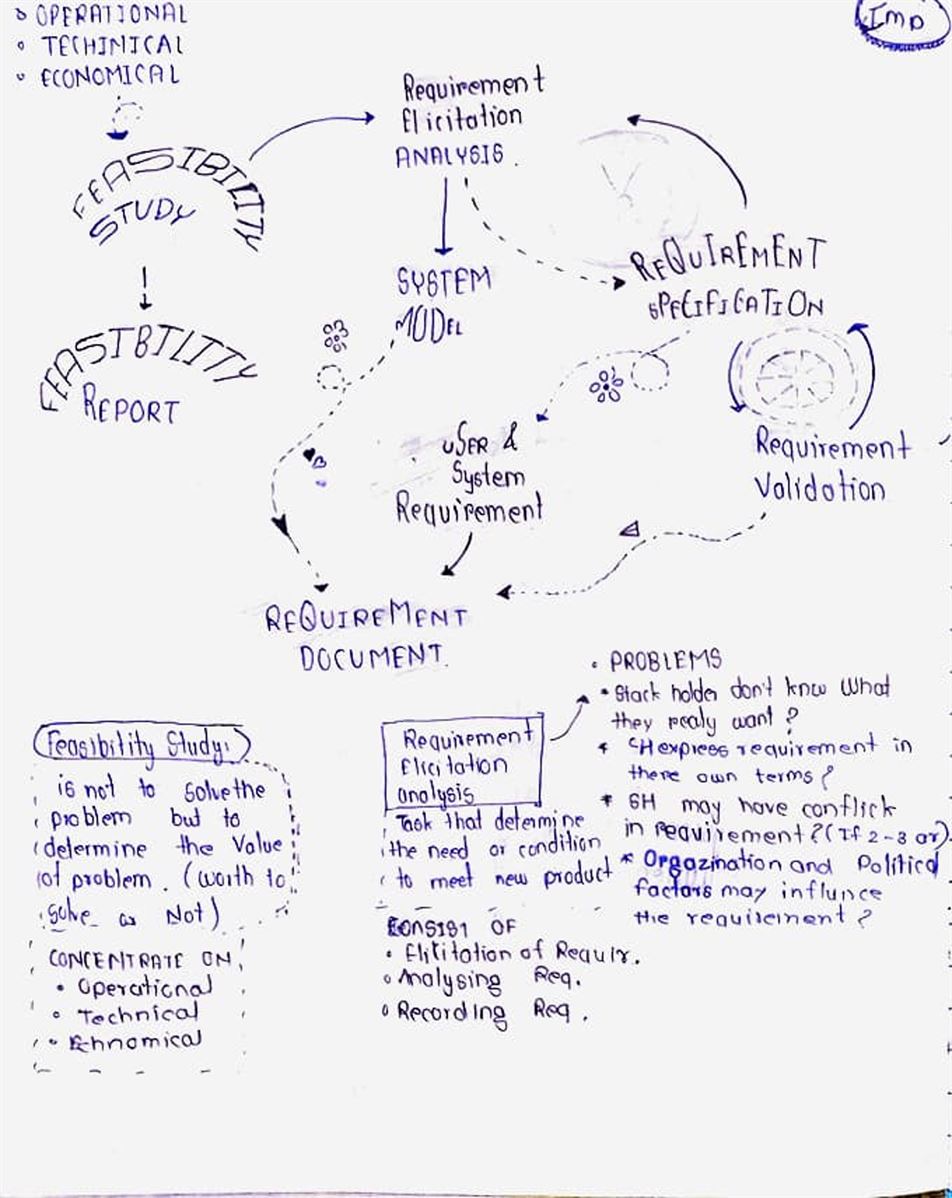 OPERATIONAL
TECHINICAL
ECONOMICAL
Imp
Requirement
Elicitation
ANALYSIS.
FEASIBILITY
STUDY
REQUIREMENT
SPECIFICATION
SYSTEM
MODEL
FEASIBILITY
REPORT
USER &
System
Requirement
Requirement
Validation
REQUIREMENT
DOCUMENT.
Feasibility Study:
is not to solve the
problem but to
determine the Value
of problem. (worth to
solve or Not)
CONCENTRATE ON
• Operational
• Technical
Requirement
Elicitation
analysis
Task that determine
the need or condition
to meet new product
CONSIST OF
• Elititation of Requir.
• Analysing Req.
• Recording Req.
• PROBLEMS
* Stack holder don't know What
they realy want?
* SH express requirement in
there own terms?
* SH may have conflick
in requirement? (If 2-3 or)
* Orgazination and Political
factors may influnce
the requirement?